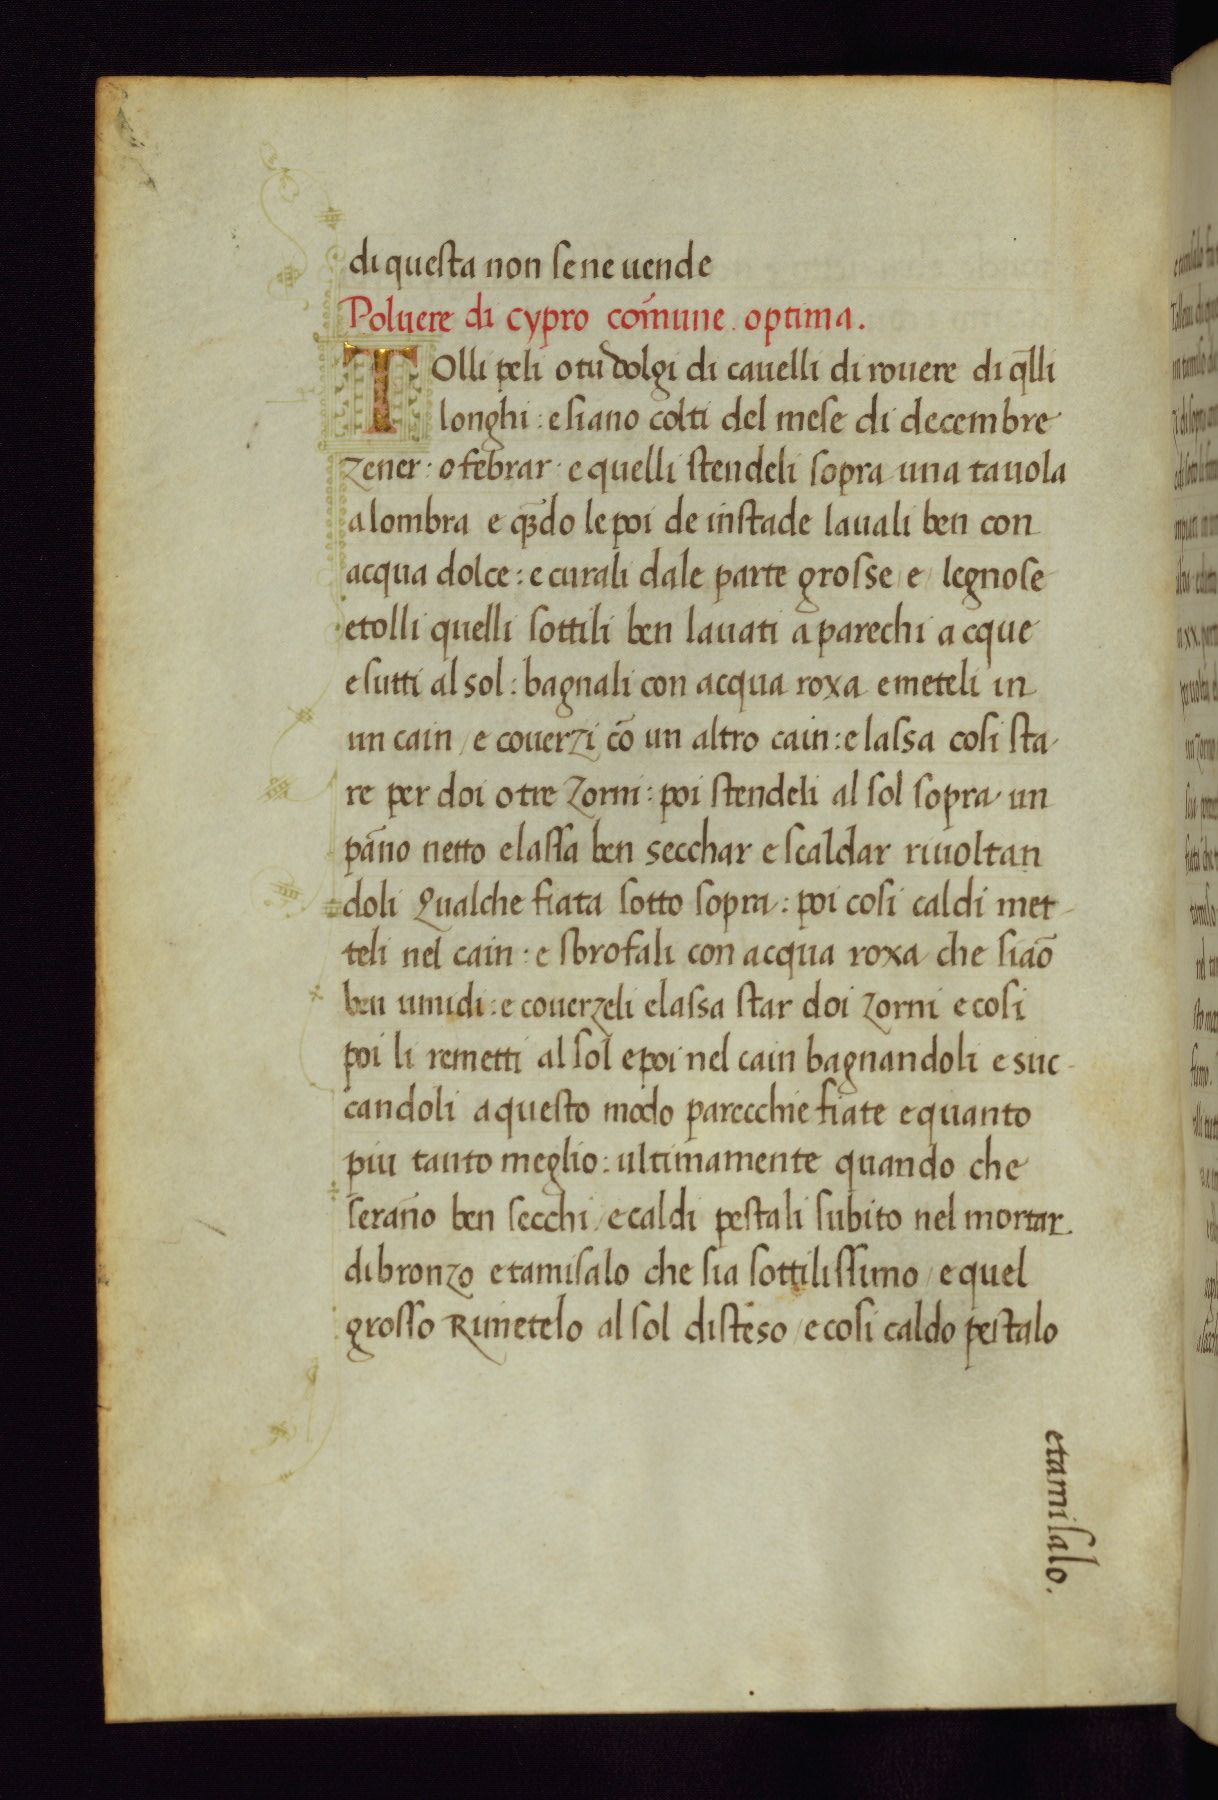 di questa non se ne uende
Poluere di cypro com̄une. optima.
TOlli peli o tu dolgi di cauelli di rouere di q̄lli
longhi: e siano colti del mese di decembre
zener· o febrar· e quelli stendeli sopra una tauola
a lombra e q̄do le poi de instade lauali ben con
acqua dolce: e curali dale parte grosse / e / legnose
e tolli quelli sottili ben lauati a parechi acque
e sutti al sol: bagnali con acqua roxa e meteli in
un cain / e couerzi cō un altro cain: e lassa cosi sta-
re per doi o tre zorni: poi stendeli al sol sopra un
pan̄o netto e lassa ben secchar e scaldar riuoltan
doli qualche fiata sotto sopra: poi cosi caldi met-
teli nel cain: e sbrofali con acqua roxa che siaō
ben umidi: e couerzeli e lassa star doi zorni e cosi
poi li remetti al sol e poi nel cain bagnandoli e suc-
candoli a questo modo parecchie fiate e quanto
piu tanto meglio: ultimamente quando che
seran̄o ben secchi / e caldi pestali subito nel mortar.
di bronzo e tamisalo che sia sottilissimo / e quel
grosso Rimetelo al sol disteso / e cosi caldo pestalo
e tamisalo.